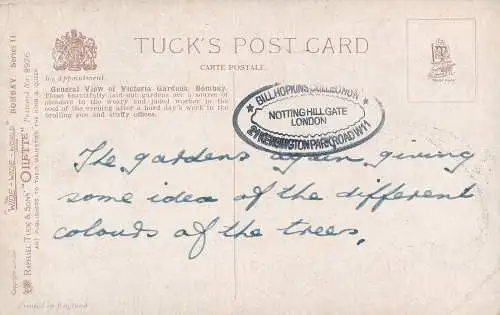 TUCK'S POST CARD
CARTE POSTALE
By Appointment.
General View of Victoria Gardens, Bombay.
These beautifully laid-out gardens are a source of
pleasure to the weary and jaded worker in the
cool of the evening after a hard day's work in the
broiling sun and stuffy offices.
BILL HOPKINS COLLECTION
NOTTING HILL GATE
LONDON
21 KENSINGTON PARK ROAD W11
The gardens again giving
some idea of the different
colours of the trees.
"WIDE-WIDE-WORLD" BOMBAY Series II
RAPHAEL TUCK & SONS' "OILETTE" Postcard No. 8926
ART PUBLISHERS TO THEIR MAJESTIES THE KING & QUEEN
Printed in England